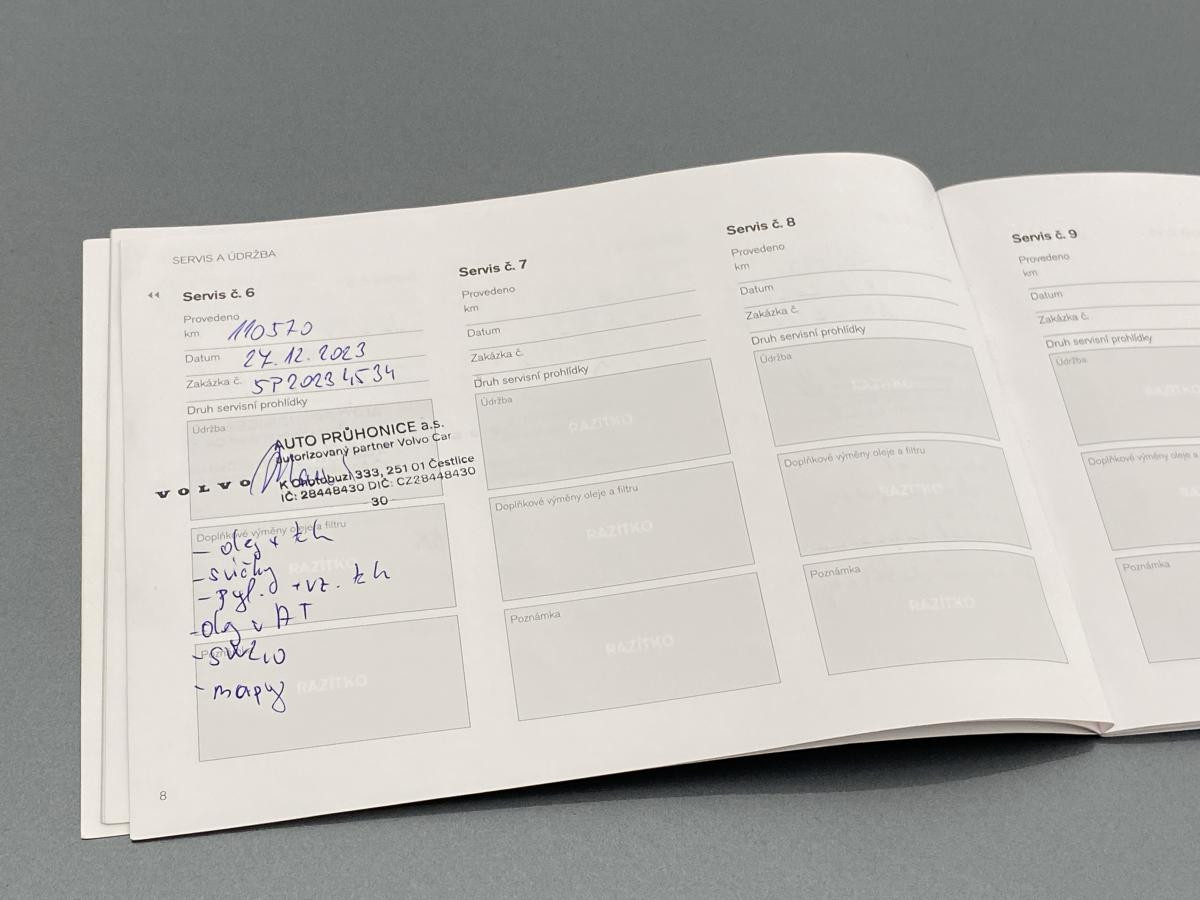 SERVIS A ÚDRŽBA
Servis č. 6
Provedeno
km 110570
Datum 27.12.2023
Zakázka č. SP20234534
Druh servisní prohlídky
Údržba
AUTO PRŮHONICE a.s.
autorizovaný partner Volvo Car
VOLVO
K Chotobuzi 333, 251 01 Čestlice
IČ: 28448430 DIČ: CZ28448430
30
Doplňkové výměny oleje a filtru
RAZÍTKO
- olej +
- svíčky
- pyl. + vz.
- olej v AT
Poznámka
RAZÍTKO
- mapy
8
Servis č. 7
Provedeno
km
Datum
Zakázka č.
Druh servisní prohlídky
Údržba
RAZÍTKO
Doplňkové výměny oleje a filtru
RAZÍTKO
Poznámka
RAZÍTKO
Servis č. 8
Provedeno
km
Datum
Zakázka č.
Druh servisní prohlídky
Údržba
RAZÍTKO
Doplňkové výměny oleje a filtru
RAZÍTKO
Poznámka
RAZÍTKO
Servis č. 9
Provedeno
km
Datum
Zakázka č.
Druh servisní prohlídky
Údržba
Doplňkové výměny oleje a
Poznámka